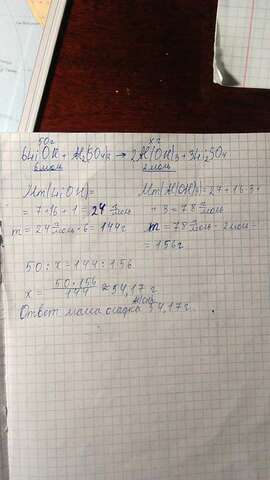 50г х г
6LiOH + Al₂(SO₄)₃ → 2Al(OH)₃ + 3Li₂SO₄
6моль 2моль
Mm(LiOH)=
= 7+16+1=24 г/моль
m = 24 г/моль · 6 = 144г
Mm(Al(OH)₃)=27+16·3+
+3=78 г/моль
m = 78 г/моль · 2моль =
= 156г
50 : x = 144 : 156
x = 50·156/144 ≈ 54,17 г
Al(OH)₃
Ответ масса осадка 54,17г.